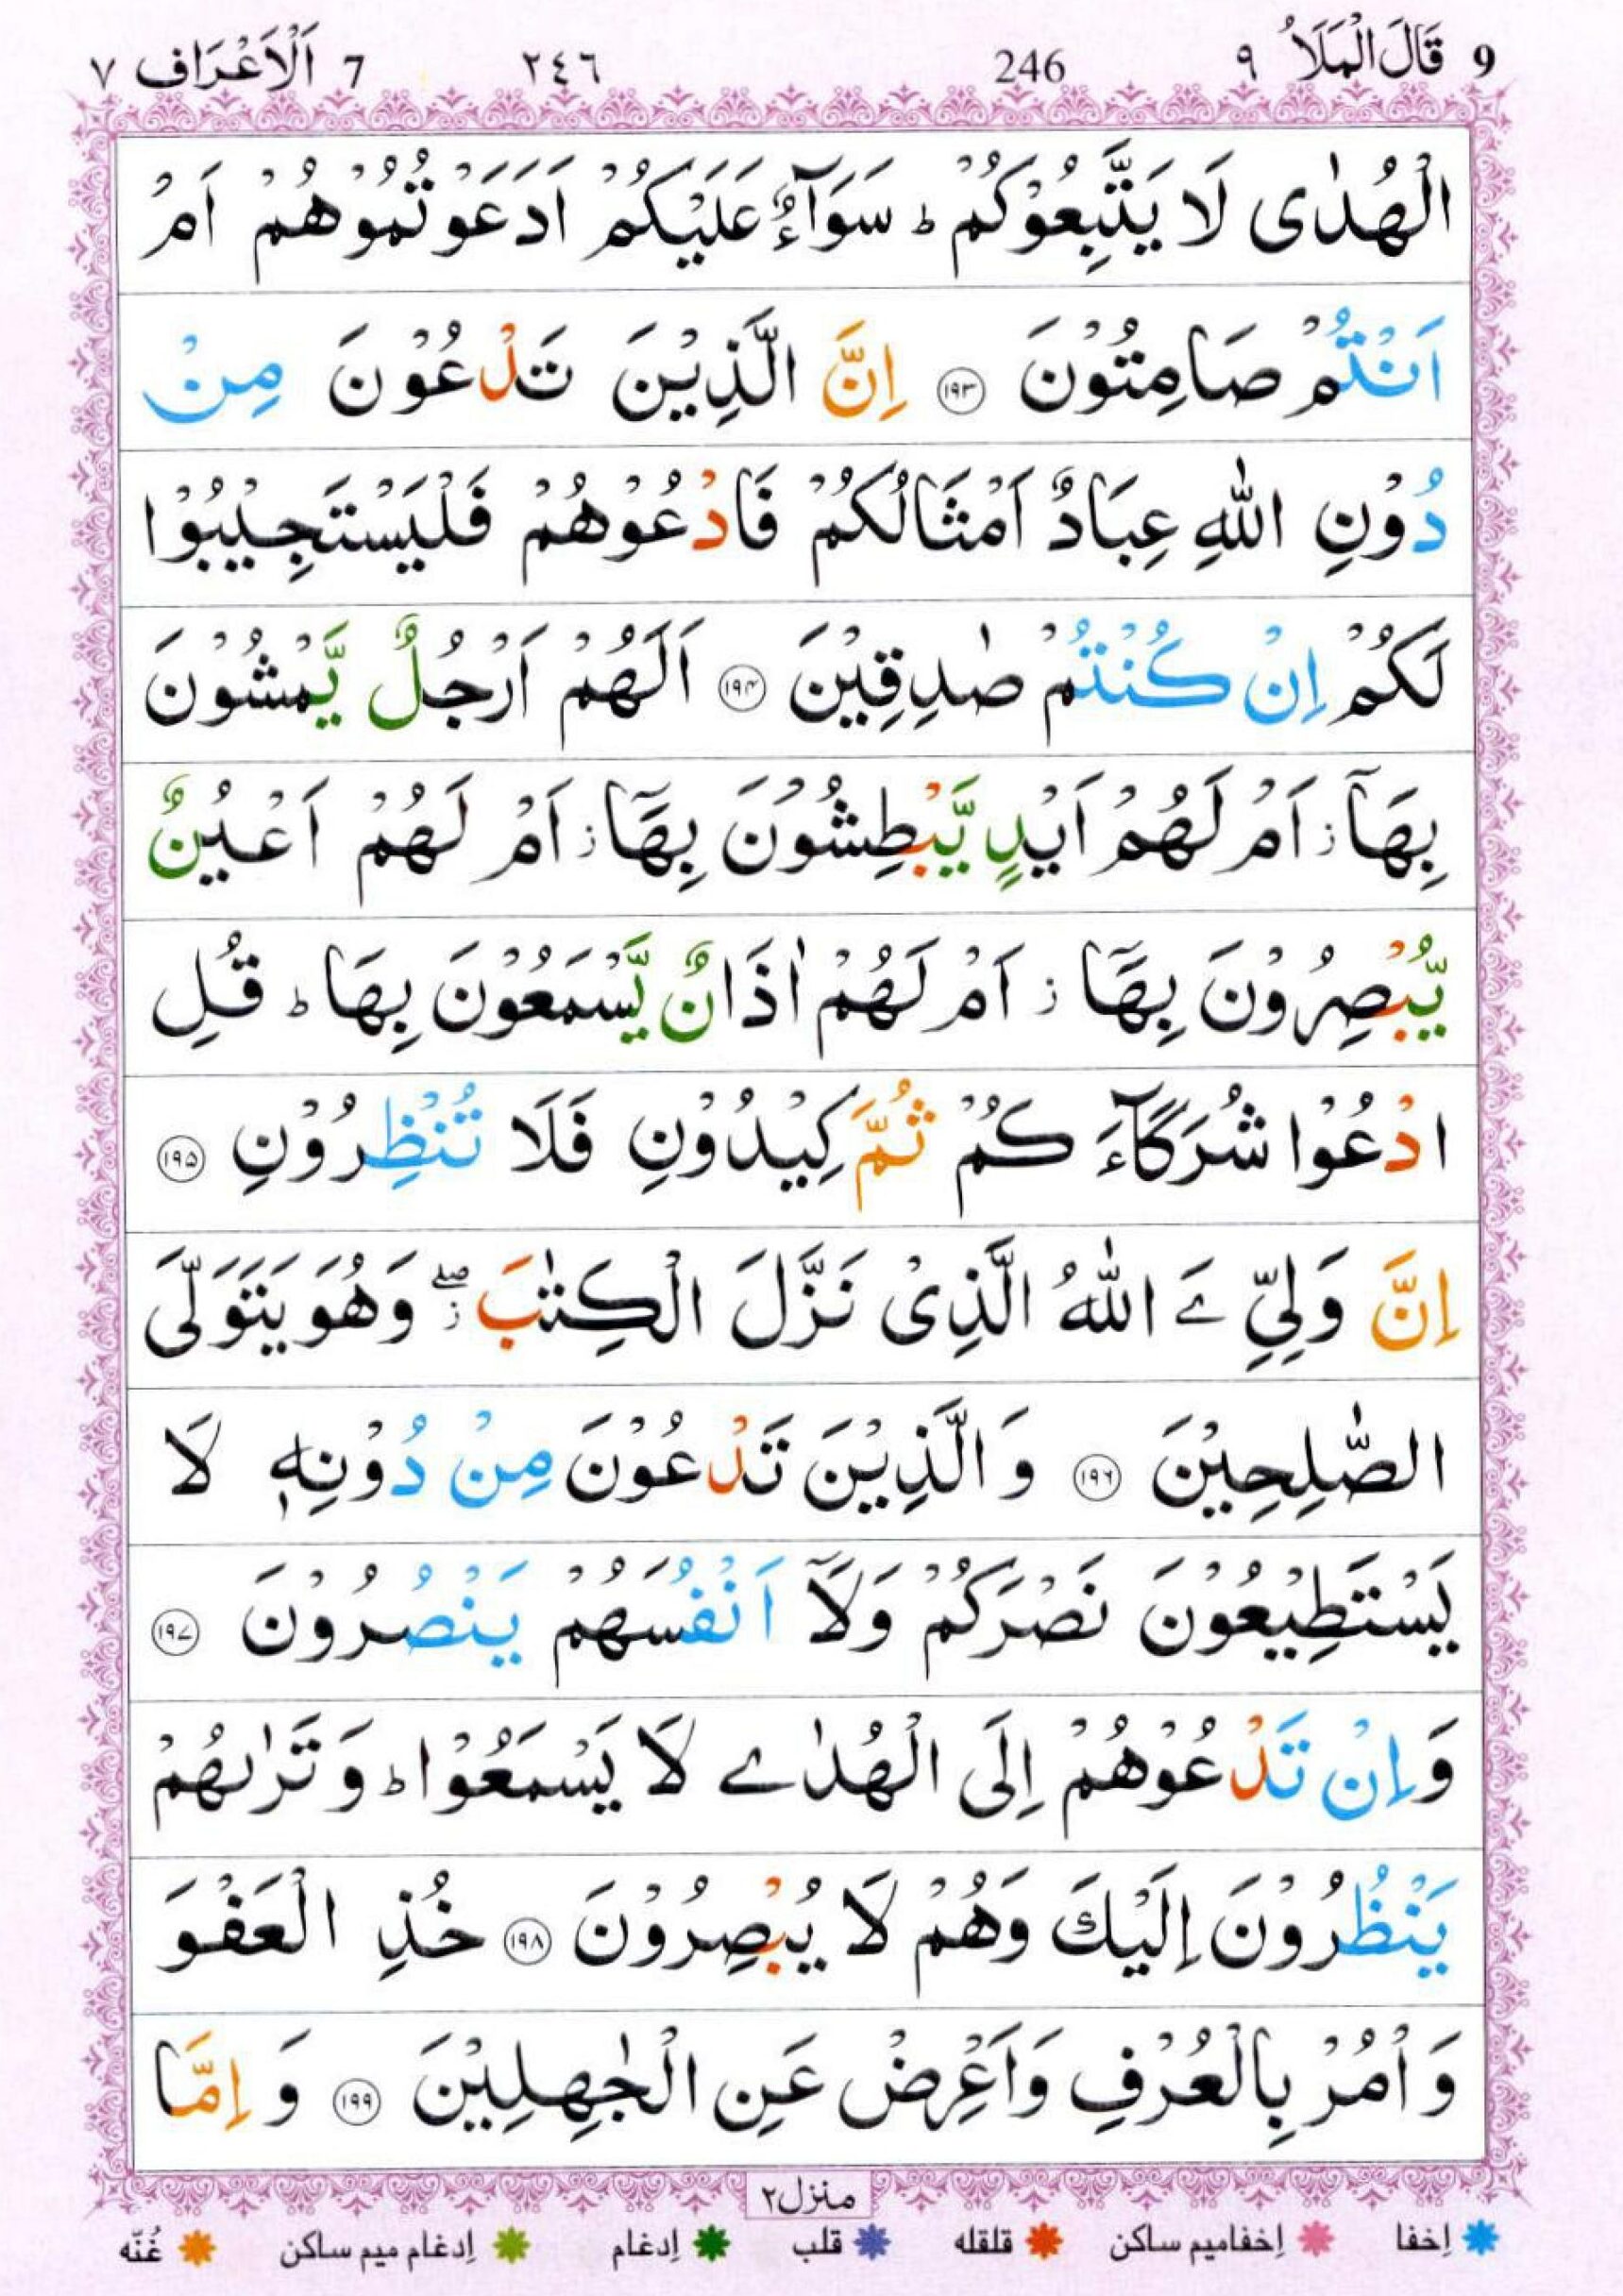 9 قَالَ الْمَلَاُ ٩ 246 ٢٤٦ 7 اَلْاَعْرَاف ٧
الْهُدٰى لَا يَتَّبِعُوْكُمْ ؕ سَوَآءٌ عَلَيْكُمْ اَدَعَوْتُمُوْهُمْ اَمْ
اَنْتُمْ صَامِتُوْنَ ۝۱۹۳ اِنَّ الَّذِيْنَ تَدْعُوْنَ مِنْ
دُوْنِ اللّٰهِ عِبَادٌ اَمْثَالُكُمْ فَادْعُوْهُمْ فَلْيَسْتَجِيْبُوْا
لَكُمْ اِنْ كُنْتُمْ صٰدِقِيْنَ ۝۱۹۴ اَلَهُمْ اَرْجُلٌ يَّمْشُوْنَ
بِهَاۤ ؗ اَمْ لَهُمْ اَيْدٍ يَّبْطِشُوْنَ بِهَاۤ ؗ اَمْ لَهُمْ اَعْيُنٌ
يُّبْصِرُوْنَ بِهَاۤ ؗ اَمْ لَهُمْ اٰذَانٌ يَّسْمَعُوْنَ بِهَا ؕ قُلِ
ادْعُوْا شُرَكَآءَ كُمْ ثُمَّ كِيْدُوْنِ فَلَا تُنْظِرُوْنِ ۝۱۹۵
اِنَّ وَلِيِّ ےَ اللّٰهُ الَّذِىْ نَزَّلَ الْكِتٰبَ ۖؗ وَهُوَ يَتَوَلَّى
الصّٰلِحِيْنَ ۝۱۹۶ وَالَّذِيْنَ تَدْعُوْنَ مِنْ دُوْنِهٖ لَا
يَسْتَطِيْعُوْنَ نَصْرَكُمْ وَلَاۤ اَنْفُسَهُمْ يَنْصُرُوْنَ ۝۱۹۷
وَاِنْ تَدْعُوْهُمْ اِلَى الْهُدٰے لَا يَسْمَعُوْا ؕ وَتَرٰىهُمْ
يَنْظُرُوْنَ اِلَيْكَ وَهُمْ لَا يُبْصِرُوْنَ ۝۱۹۸ خُذِ الْعَفْوَ
وَاْمُرْ بِالْعُرْفِ وَاَعْرِضْ عَنِ الْجٰهِلِيْنَ ۝۱۹۹ وَاِمَّا
منزل۲
إخفا إخفامیم ساکن قلقله قلب إدغام إدغام میم ساکن غُنّه